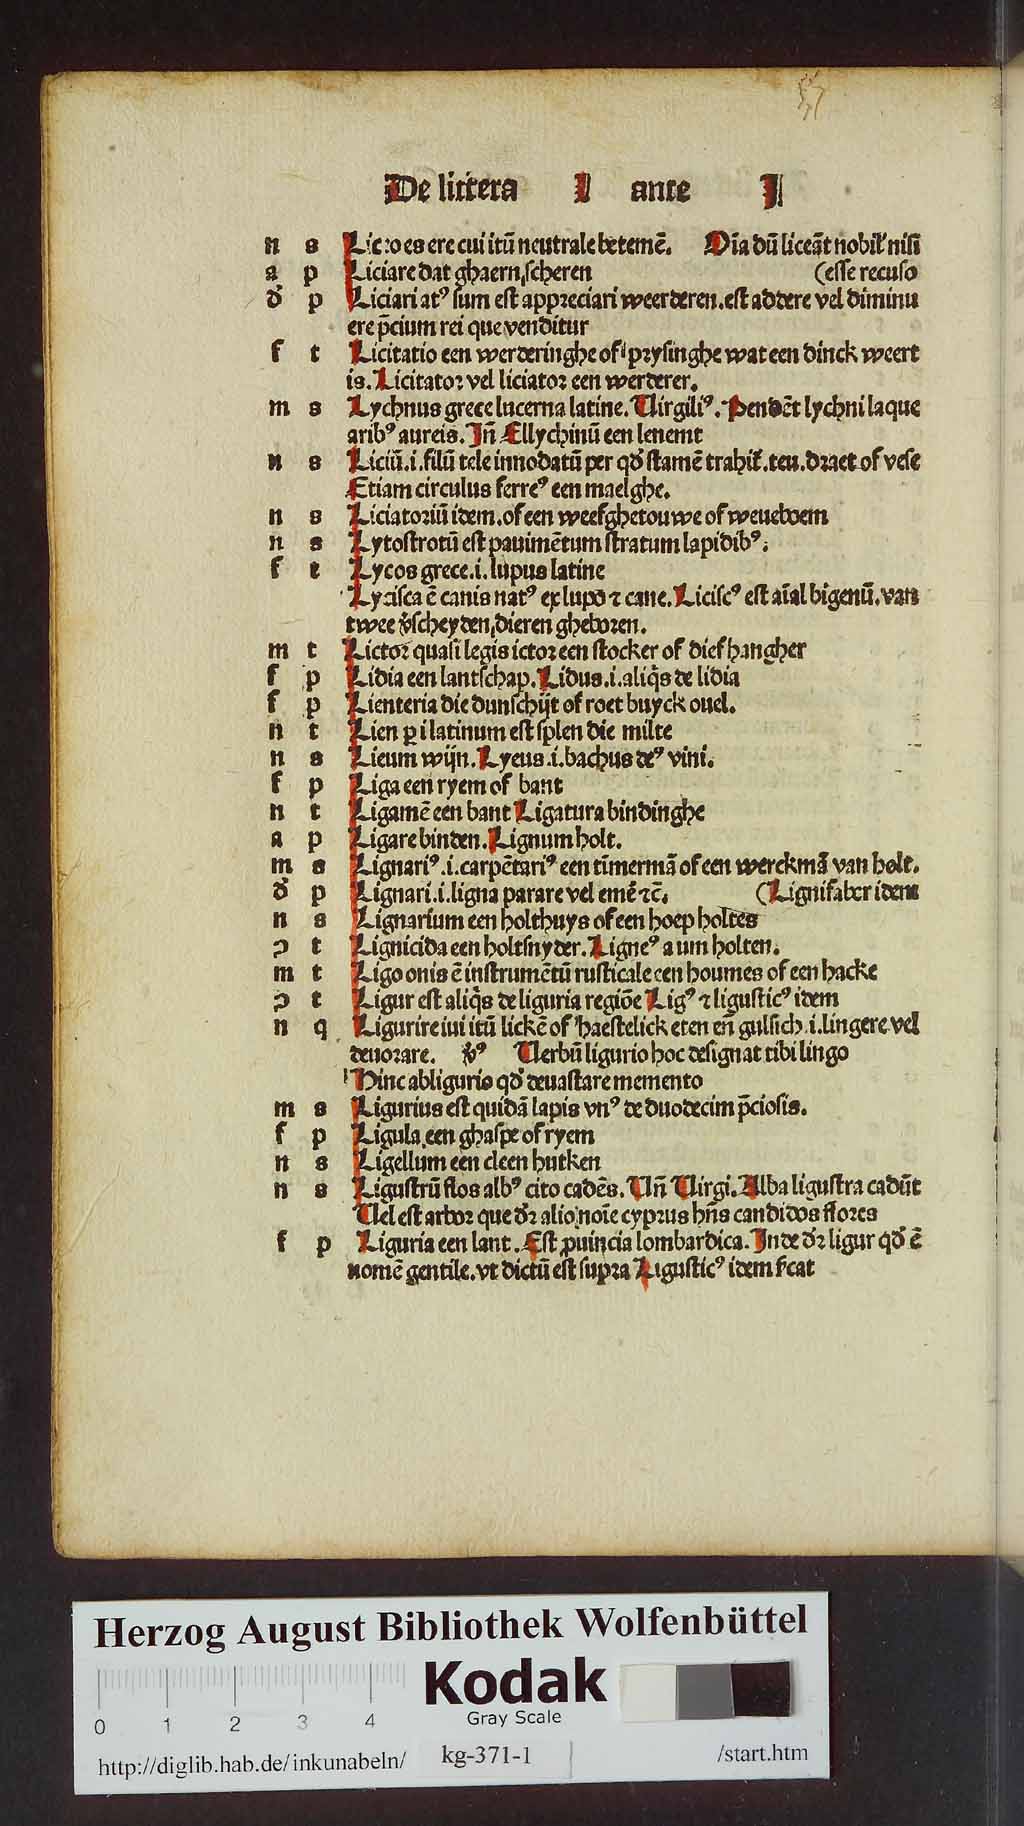 57
De littera L ante I
n s Liceo es ere cui itū neutrale betemē. Oīa dū liceāt nobis nisi
a p Liciare dat ghaern scheren (esse recuso
d' p Liciari atꝰ sum est appreciari weerderen. est addere vel diminu
ere p̄cium rei que venditur
f t Licitatio een werderinghe of prysinghe wat een dinck weert
is. Licitator vel liciator een werderer.
m s Lychnus grece lucerna latine. Virgiliꝰ. Pendēt lychni laque
aribꝰ aureis. Jn̄ Ellychinū een lenemt
n s Liciū .i. filū tele innodatū per qd' stamē trahit᷑. teu. draet of vese
Etiam circulus ferreꝰ een maelghe.
n s Liciatoriū idem. of een weefghetouwe of weueboem
n s Lytostrotū est pauimētum stratum lapidibꝰ.
f t Lycos grece .i. lupus latine
Lycisca ē canis natꝰ ex lupo ⁊ cane. Liciscꝰ est aīal bigenū. van
twee v̄scheyden dieren gheboren.
m t Lictor quasi legis ictor een stocker of diefhangher
f p Lidia een lantschap. Lidus .i. aliq̄s de lidia
f p Lienteria die dunschijt of roet buyck ouel.
n t Lien ꝑ i latinum est splen die milte
n s Lieum wijn. Lyeus .i. bachus deꝰ vini.
f p Liga een ryem of bant
n t Ligamē een bant Ligatura bindinghe
a p Ligare binden. Lignum holt.
m s Lignariꝰ .i. carpētariꝰ een tīmermā of een werckmā van holt.
d' p Lignari .i. ligna parare vel emē ⁊c̄. (Lignifaber idem
n s Lignarium een holthuys of een hoep holtes
ɔ t Lignicida een holtsnyder. Ligneꝰ a um holten.
m t Ligo onis ē instrumētū rusticale een houmes of een hacke
ɔ t Ligur est aliq̄s de liguria regiōe Ligꝰ ⁊ ligusticꝰ idem
n q Ligurire iui itū lickē of haestelick eten en̄ gulsich .i. lingere vel
deuorare. v̄ꝰ Uerbū ligurio hoc designat tibi lingo
Hinc abligurio qd' deuastare memento
m s Ligurius est quidā lapis vnꝰ de duodecim p̄ciosis.
f p Ligula een ghaspe of ryem
n s Ligellum een cleen hutken
n s Ligustrū flos albꝰ cito cadēs. Un̄ Virgi. Alba ligustra cadūt
Uel est arbor que d'r alio noīe cyprus hn̄s candidos flores
f p Liguria een lant. Est ꝓuincia lombardica. Jnde d'r ligur qd' ē
nomē gentile. vt dictū est supra Ligusticꝰ idem s̄cat
Herzog August Bibliothek Wolfenbüttel
0 1 2 3 4
Kodak
Gray Scale
http://diglib.hab.de/inkunabeln/ kg-371-1 /start.htm